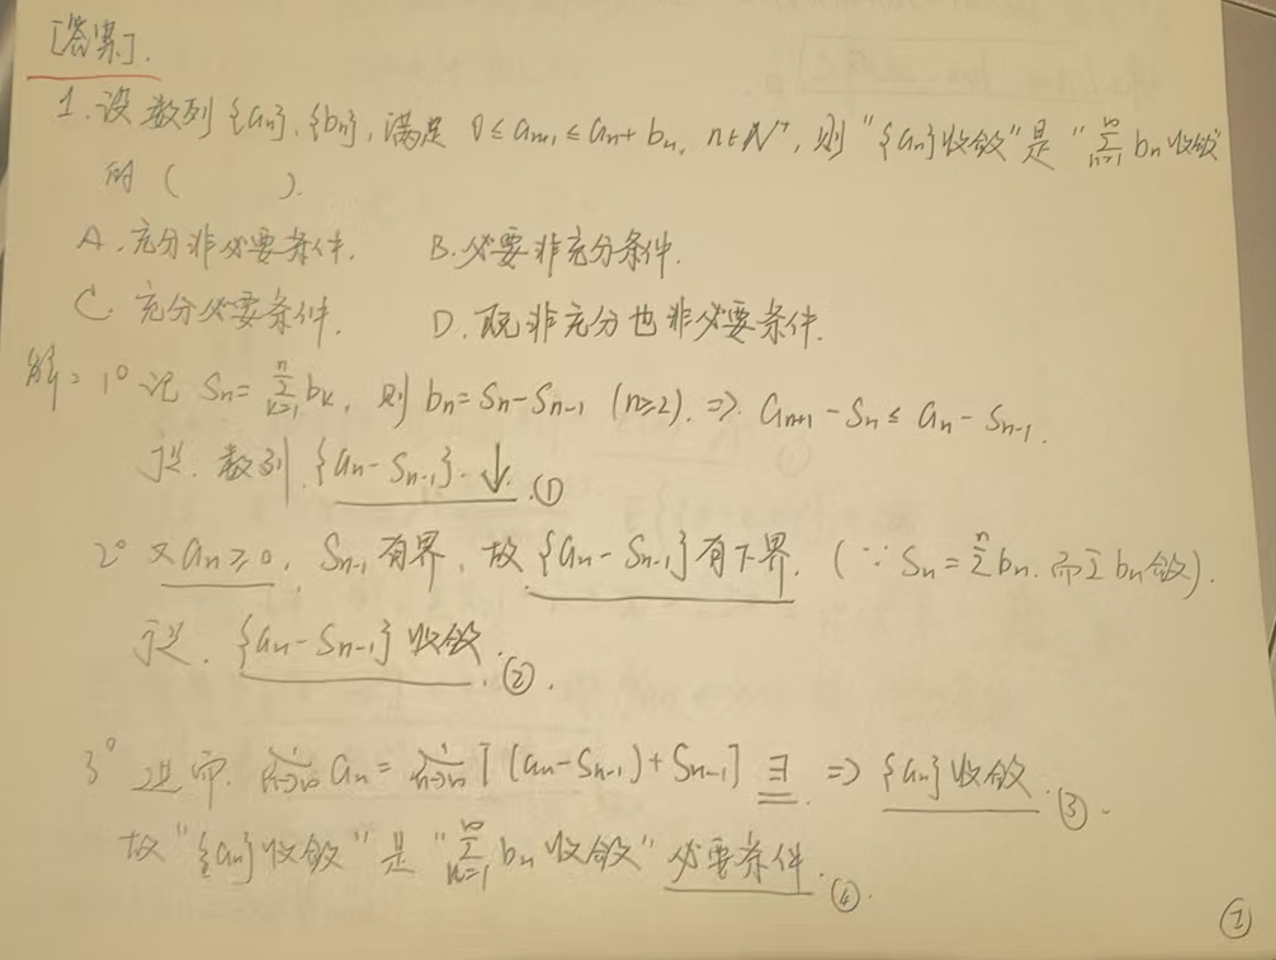 [答案].
1. 设数列{an}, {bn}, 满足 0 ≤ an+1 ≤ an + bn, n∈N⁺, 则 "{an}收敛" 是 "∑_{n=1}^{∞} bn 收敛"
的 (    ).
A. 充分非必要条件. B. 必要非充分条件.
C. 充分必要条件. D. 既非充分也非必要条件.
解: 1° 记 Sn = ∑_{k=1}^{n} bk, 则 bn = Sn - Sn-1 (n≥2). ⇒ an+1 - Sn ≤ an - Sn-1.
于是. 数列 {an - Sn-1}. ↓. ①
2° 又 an ≥ 0, Sn-1 有界, 故 {an - Sn-1} 有下界. (∵ Sn = ∑^{n} bn. 而∑bn敛).
于是. {an - Sn-1} 收敛. ②.
3° 进而. lim_{n→∞} an = lim_{n→∞} [(an - Sn-1) + Sn-1] ∃. ⇒ {an} 收敛. ③.
故 "{an}收敛" 是 "∑_{n=1}^{∞} bn 收敛" 必要条件. ④.
①